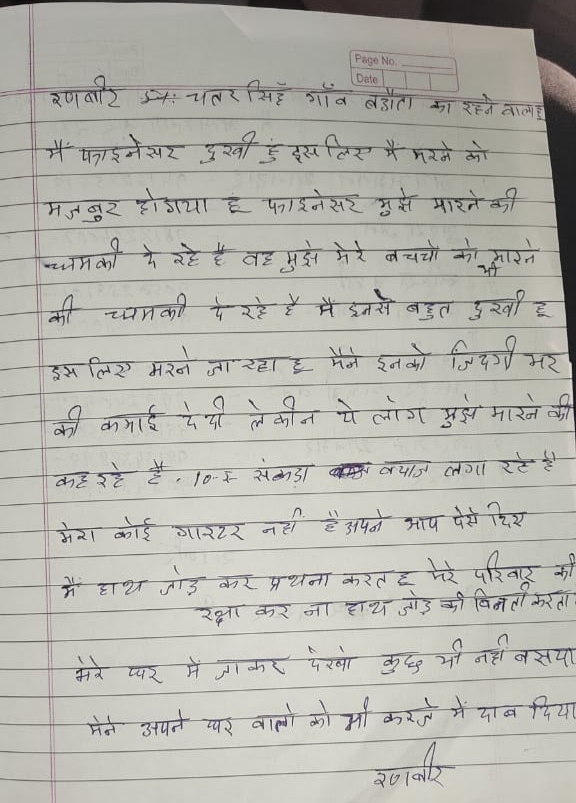 Page No.
Date
रणबीर S/o: चतर सिहँ गाँव बडौता का रहने वालाहू
मैं फाइनेसर दुखी हुं इस लिए मैं मरने को
मजबुर होगया हू फाइनेसर मुझे मारने की
धामकी दे रहे है वह मुझे मेरे बचचो को मारने
भी
की धामकी दे रहे है मैं इनसे बहुत दुखी हू
इस लिए मरने जा रहा हू मैंने इनको जिदगी भर
की कमाई दे दी लेकीन ये लोग मुझे मारने की
कह रहे है. 10-र सेंकड़ा वयाज लगा रहे है
मेरा कोई गारटर नहीं है अपने आप पेसे दिए
मैं हाथ जोड़ कर प्रथना करत हू मेरे परिवार की
रक्षा कर ना हाथ जोड़ की विनती करता
मेरे घर में जा कर देखो कुछ भी नही बसया
मेने अपने घर वालो को भी करजे में दाब दिया
रणबीर